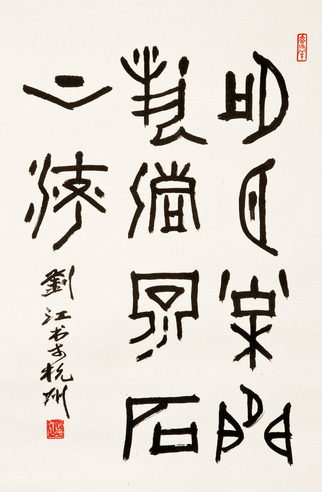 明月松間
照清泉石
上流
劉江书于杭州